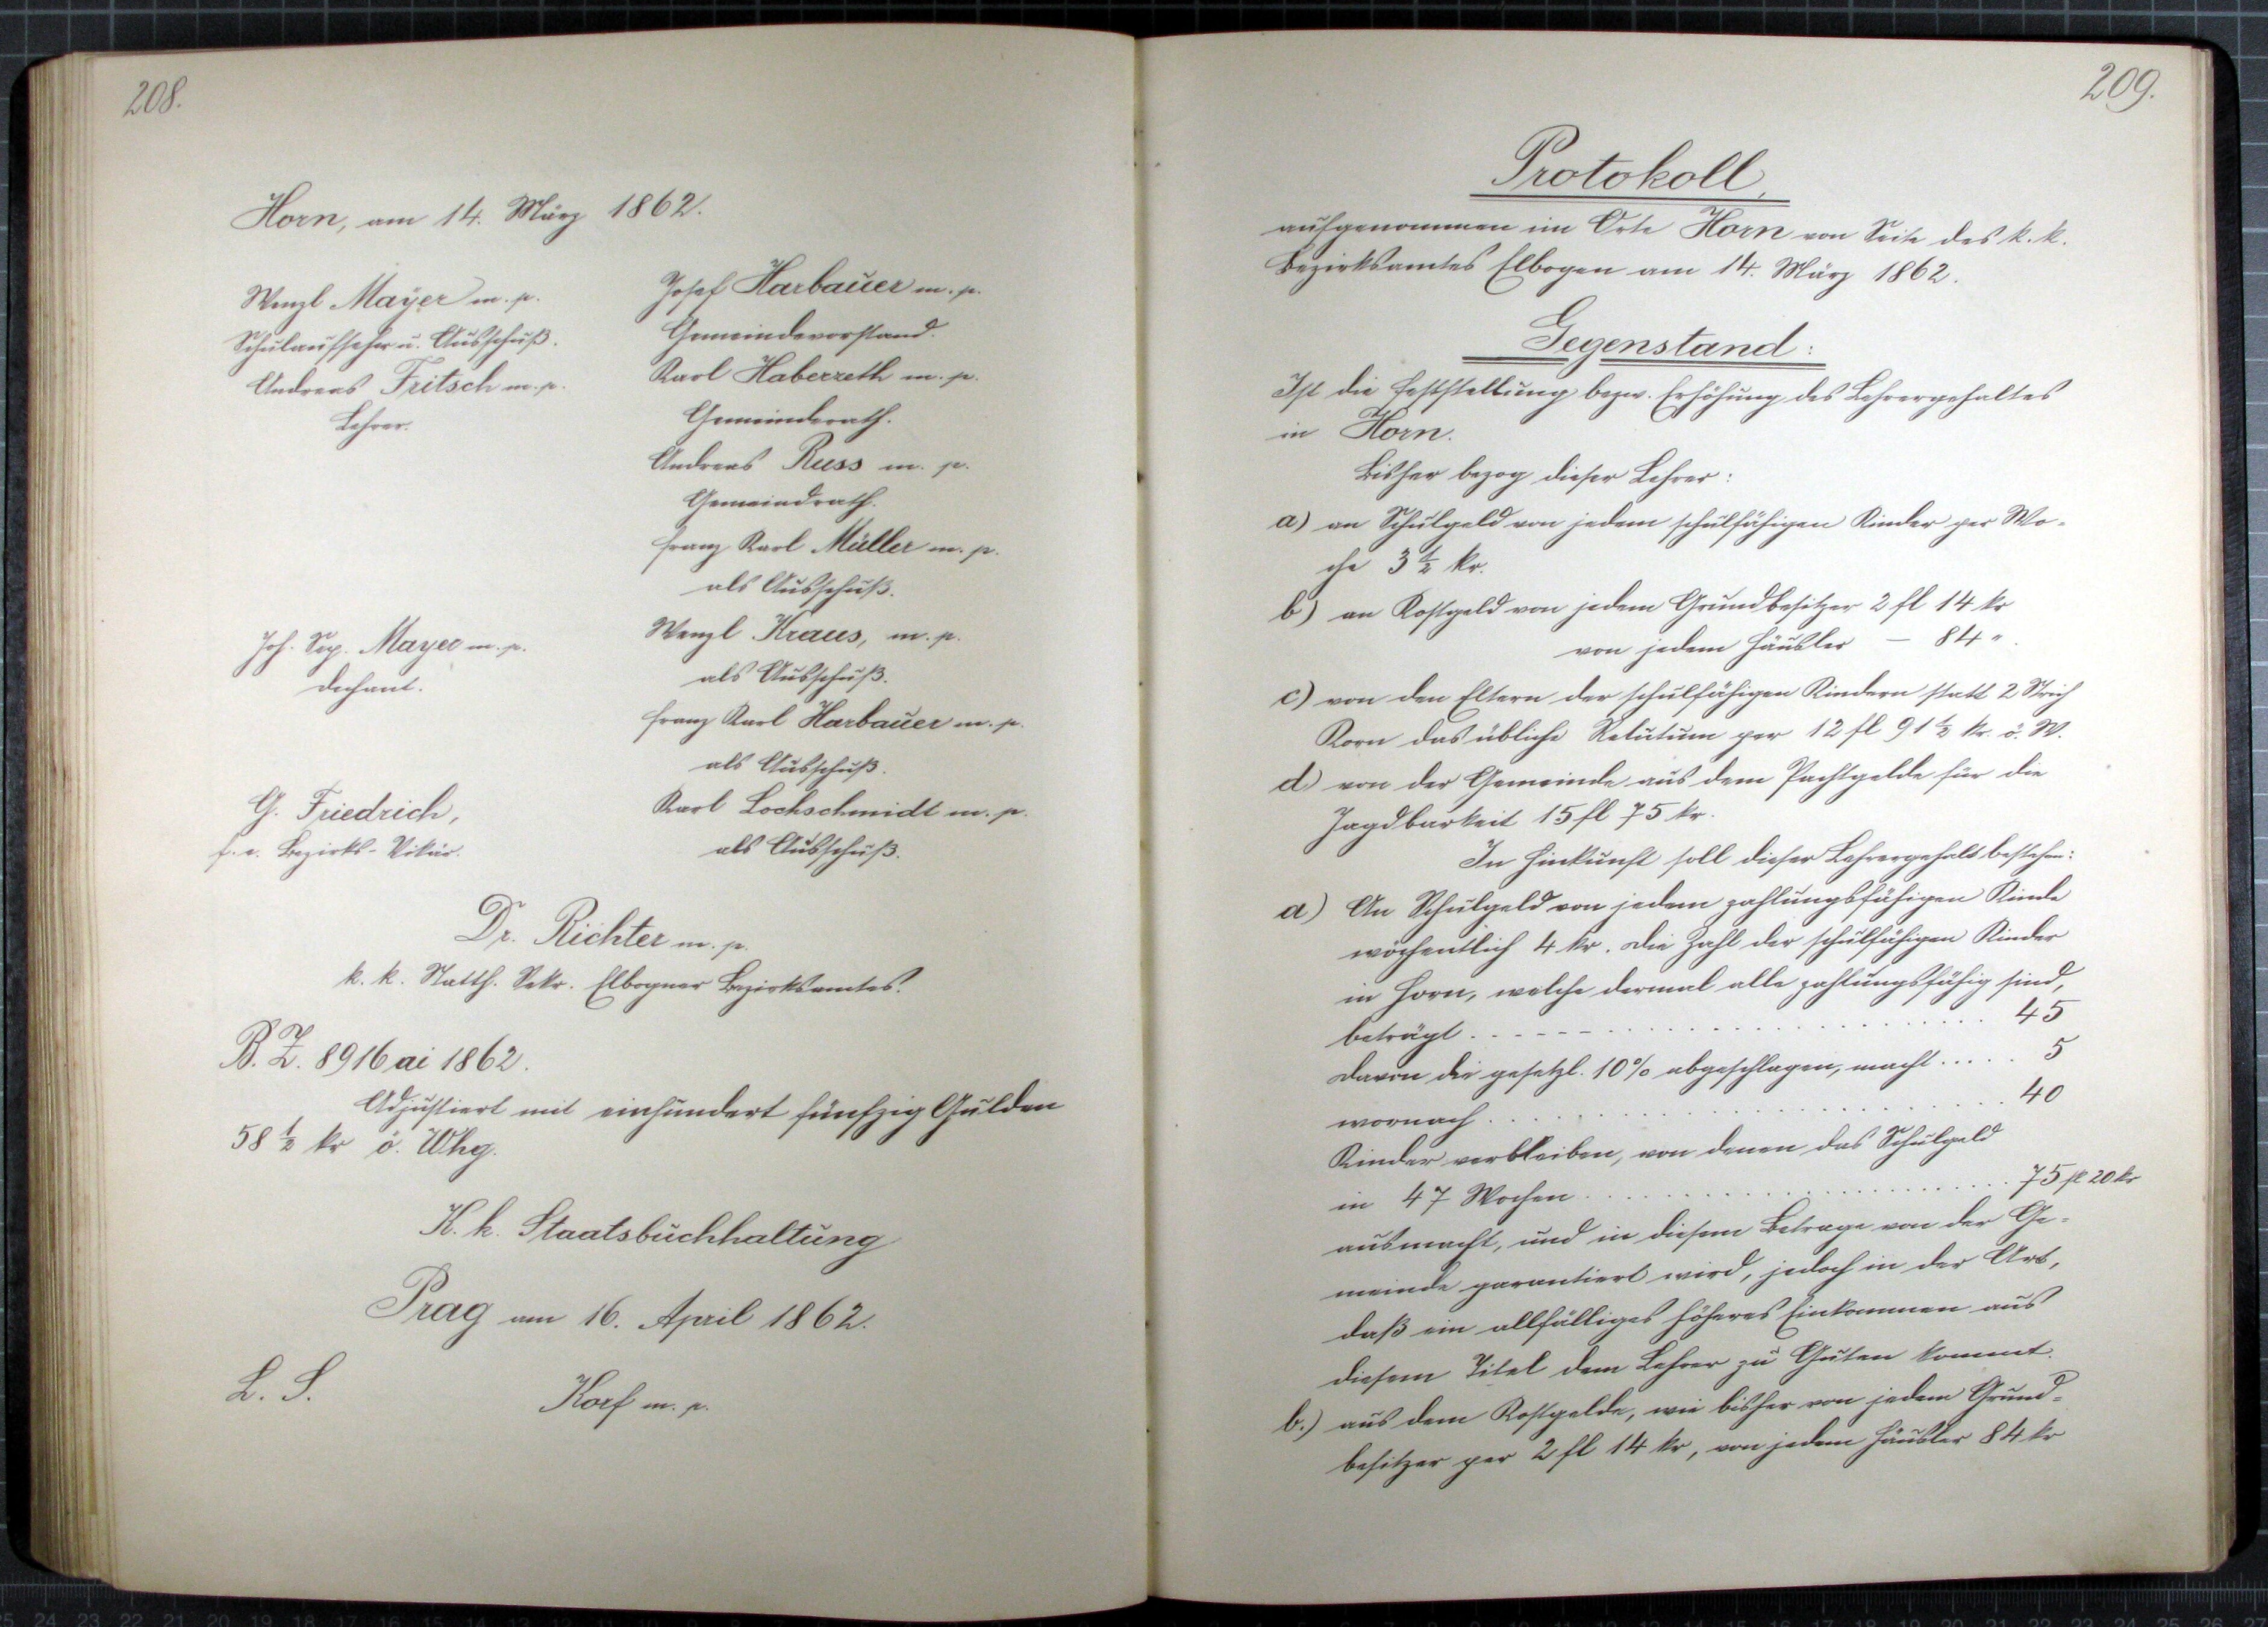 208.
Horn, am 14. März 1862.
Wenzl Mayer m. p.
Schulaufseher u. Ausschuß.
Andreas Fritsch m. p.
Lehrer.
Joh. Nep. Mayer m. p.
Dechant.
G. Friedrich,
f. e. Bezirks-Vikär.
Josef Harbauer m. p.
Gemeindevorstand.
Karl Haberzeth m. p.
Gemeinderath.
Andreas Russ m. p.
Gemeindrath.
Franz Karl Müller m. p.
als Ausschuß.
Wenzl Kraus, m. p.
als Ausschuß.
Franz Karl Harbauer m. p.
als Ausschuß.
Karl Lochschmidt m. p.
als Ausschuß.
Dr. Richter m. p.
k. k. Statth. Sekr. Elbogner Bezirksamtes.
B. Z. 8916 ai 1862.
Adjustiert mit einhundert fünfzig Gulden
58 ½ kr ö. Whg.
K. k. Staatsbuchhaltung
Prag am 16. April 1862.
L. S. Korf m. p.
209.
Protokoll,
aufgenommen im Orte Horn von Seite des k. k.
Bezirksamtes Elbogen am 14. März 1862.
Gegenstand:
Ist die Feststellung bezw. Erhöhung des Lehrergehaltes
in Horn.
Bisher bezog dieser Lehrer:
a) an Schulgeld von jedem schulfähigen Kinder per Wo-
che 3 ½ kr.
b) an Kostgeld von jedem Grundbesitzer 2 fl 14 kr
von jedem Häusler — 84 ".
c) von den Eltern der schulfähigen Kindern statt 2 Strich
Korn das übliche Relutum per 12 fl 91 ½ kr. ö. W.
d) von der Gemeinde aus dem Pachtgelde für die
Jagdbarkeit 15 fl 75 kr.
In Hinkunft soll dieser Lehrergehalt bestehen:
a) An Schulgeld von jedem zahlungsfähigen Kinde
wöchentlich 4 kr. Die Zahl der schulfähigen Kinder
in Horn, welche dermal alle zahlungsfähig sind,
beträgt . . . . . . . . . . 45
davon die gesetzl. 10% abgeschlagen, macht . . . . . 5
wornach . . . . . . . . . . 40
Kinder verbleiben, von denen das Schulgeld
in 47 Wochen . . . . . . . . . . 75 fl 20 kr
ausmacht, und in diesem Betrage von der Ge-
meinde garantiert wird, jedoch in der Art,
daß ein allfälliges höheres Einkommen aus
diesem Titel dem Lehrer zu Guten kommt.
b.) aus dem Kostgelde, wie bisher von jedem Grund-
besitzer per 2 fl 14 kr, von jedem Häusler 84 kr